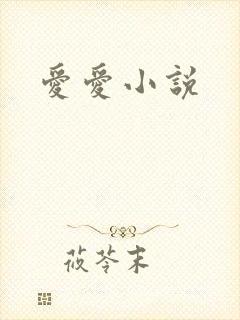 愛愛小説
莜苓末